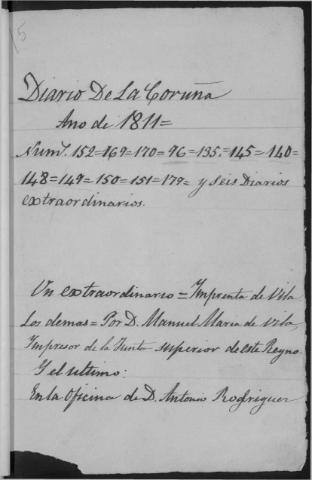 5
Diario De La Coruña
Ano de 1811=
Nums. 152=169=170=96=135.=145=140=
148=149=150=151=179= y seis Diarios
extraordinarios.
Un extraordinario=Imprenta de Vila
Los demas=Por D. Manuel Maria de Vila,
Impresor de la Junta superior de este Reyno
Y el ultimo:
En la Oficina de D. Antonio Rodriguez